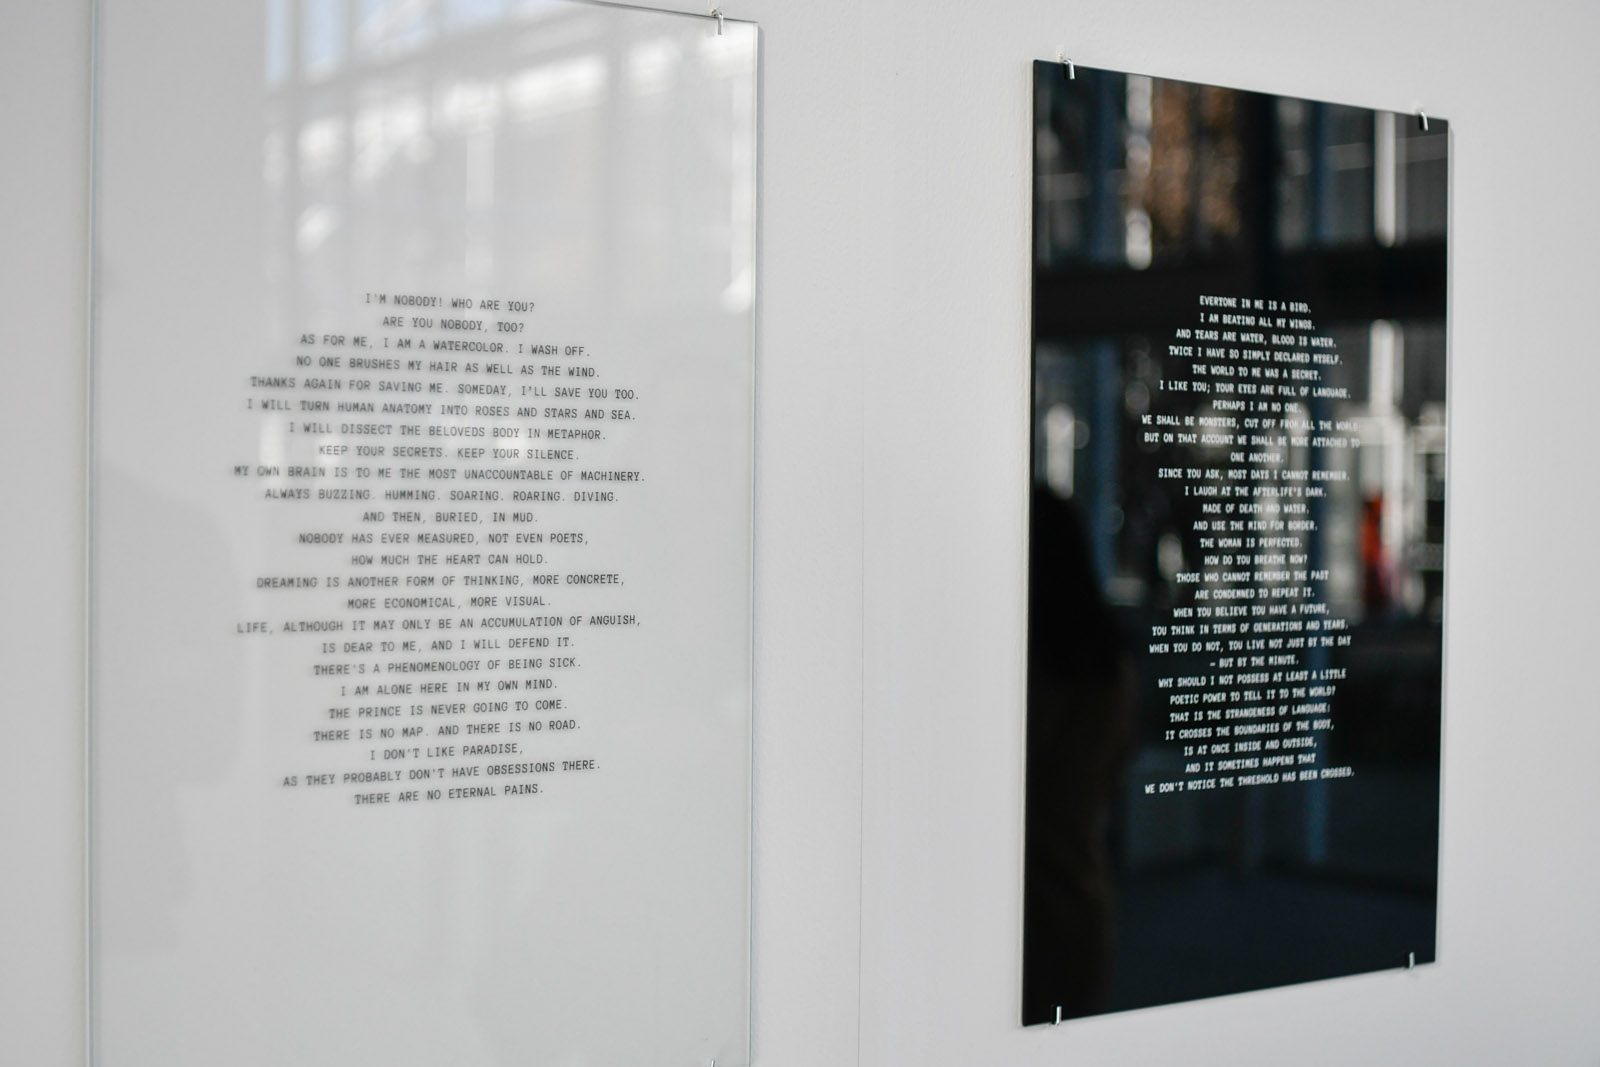 I'M NOBODY! WHO ARE YOU?
ARE YOU NOBODY, TOO?
AS FOR ME, I AM A WATERCOLOR. I WASH OFF.
NO ONE BRUSHES MY HAIR AS WELL AS THE WIND.
THANKS AGAIN FOR SAVING ME. SOMEDAY, I'LL SAVE YOU TOO.
I WILL TURN HUMAN ANATOMY INTO ROSES AND STARS AND SEA.
I WILL DISSECT THE BELOVEDS BODY IN METAPHOR.
KEEP YOUR SECRETS. KEEP YOUR SILENCE.
MY OWN BRAIN IS TO ME THE MOST UNACCOUNTABLE OF MACHINERY.
ALWAYS BUZZING. HUMMING. SOARING. ROARING. DIVING.
AND THEN, BURIED, IN MUD.
NOBODY HAS EVER MEASURED, NOT EVEN POETS,
HOW MUCH THE HEART CAN HOLD.
DREAMING IS ANOTHER FORM OF THINKING, MORE CONCRETE,
MORE ECONOMICAL, MORE VISUAL.
LIFE, ALTHOUGH IT MAY ONLY BE AN ACCUMULATION OF ANGUISH,
IS DEAR TO ME, AND I WILL DEFEND IT.
THERE'S A PHENOMENOLOGY OF BEING SICK.
I AM ALONE HERE IN MY OWN MIND.
THE PRINCE IS NEVER GOING TO COME.
THERE IS NO MAP. AND THERE IS NO ROAD.
I DON'T LIKE PARADISE,
AS THEY PROBABLY DON'T HAVE OBSESSIONS THERE.
THERE ARE NO ETERNAL PAINS.
EVERYONE IN ME IS A BIRD.
I AM BEATING ALL MY WINGS.
AND TEARS ARE WATER, BLOOD IS WATER.
TWICE I HAVE SO SIMPLY DECLARED MYSELF.
THE WORLD TO ME WAS A SECRET.
I LIKE YOU; YOUR EYES ARE FULL OF LANGUAGE.
PERHAPS I AM NO ONE.
WE SHALL BE MONSTERS, CUT OFF FROM ALL THE WORLD;
BUT ON THAT ACCOUNT WE SHALL BE MORE ATTACHED TO
ONE ANOTHER.
SINCE YOU ASK, MOST DAYS I CANNOT REMEMBER.
I LAUGH AT THE AFTERLIFE'S DARK.
MADE OF DEATH AND WATER,
AND USE THE MIND FOR BORDER.
THE WOMAN IS PERFECTED.
HOW DO YOU BREATHE NOW?
THOSE WHO CANNOT REMEMBER THE PAST
ARE CONDEMNED TO REPEAT IT.
WHEN YOU BELIEVE YOU HAVE A FUTURE,
YOU THINK IN TERMS OF GENERATIONS AND YEARS,
WHEN YOU DO NOT, YOU LIVE NOT JUST BY THE DAY
– BUT BY THE MINUTE.
WHY SHOULD I NOT POSSESS AT LEAST A LITTLE
POETIC POWER TO TELL IT TO THE WORLD?
THAT IS THE STRANGENESS OF LANGUAGE:
IT CROSSES THE BOUNDARIES OF THE BODY,
IS AT ONCE INSIDE AND OUTSIDE,
AND IT SOMETIMES HAPPENS THAT
WE DON'T NOTICE THE THRESHOLD HAS BEEN CROSSED.